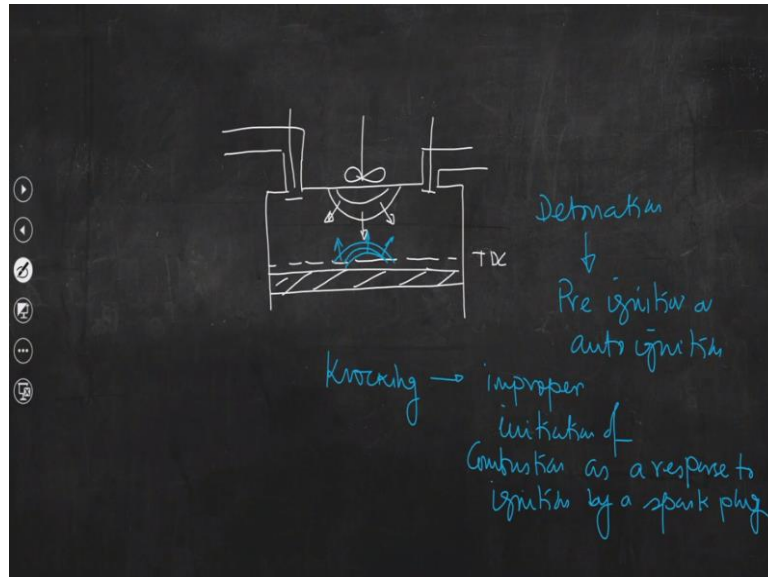 TDC
Detonation
Pre ignition or
auto ignition
Knocking → improper
initiation of
Combustion as a response to
ignition by a spark plug